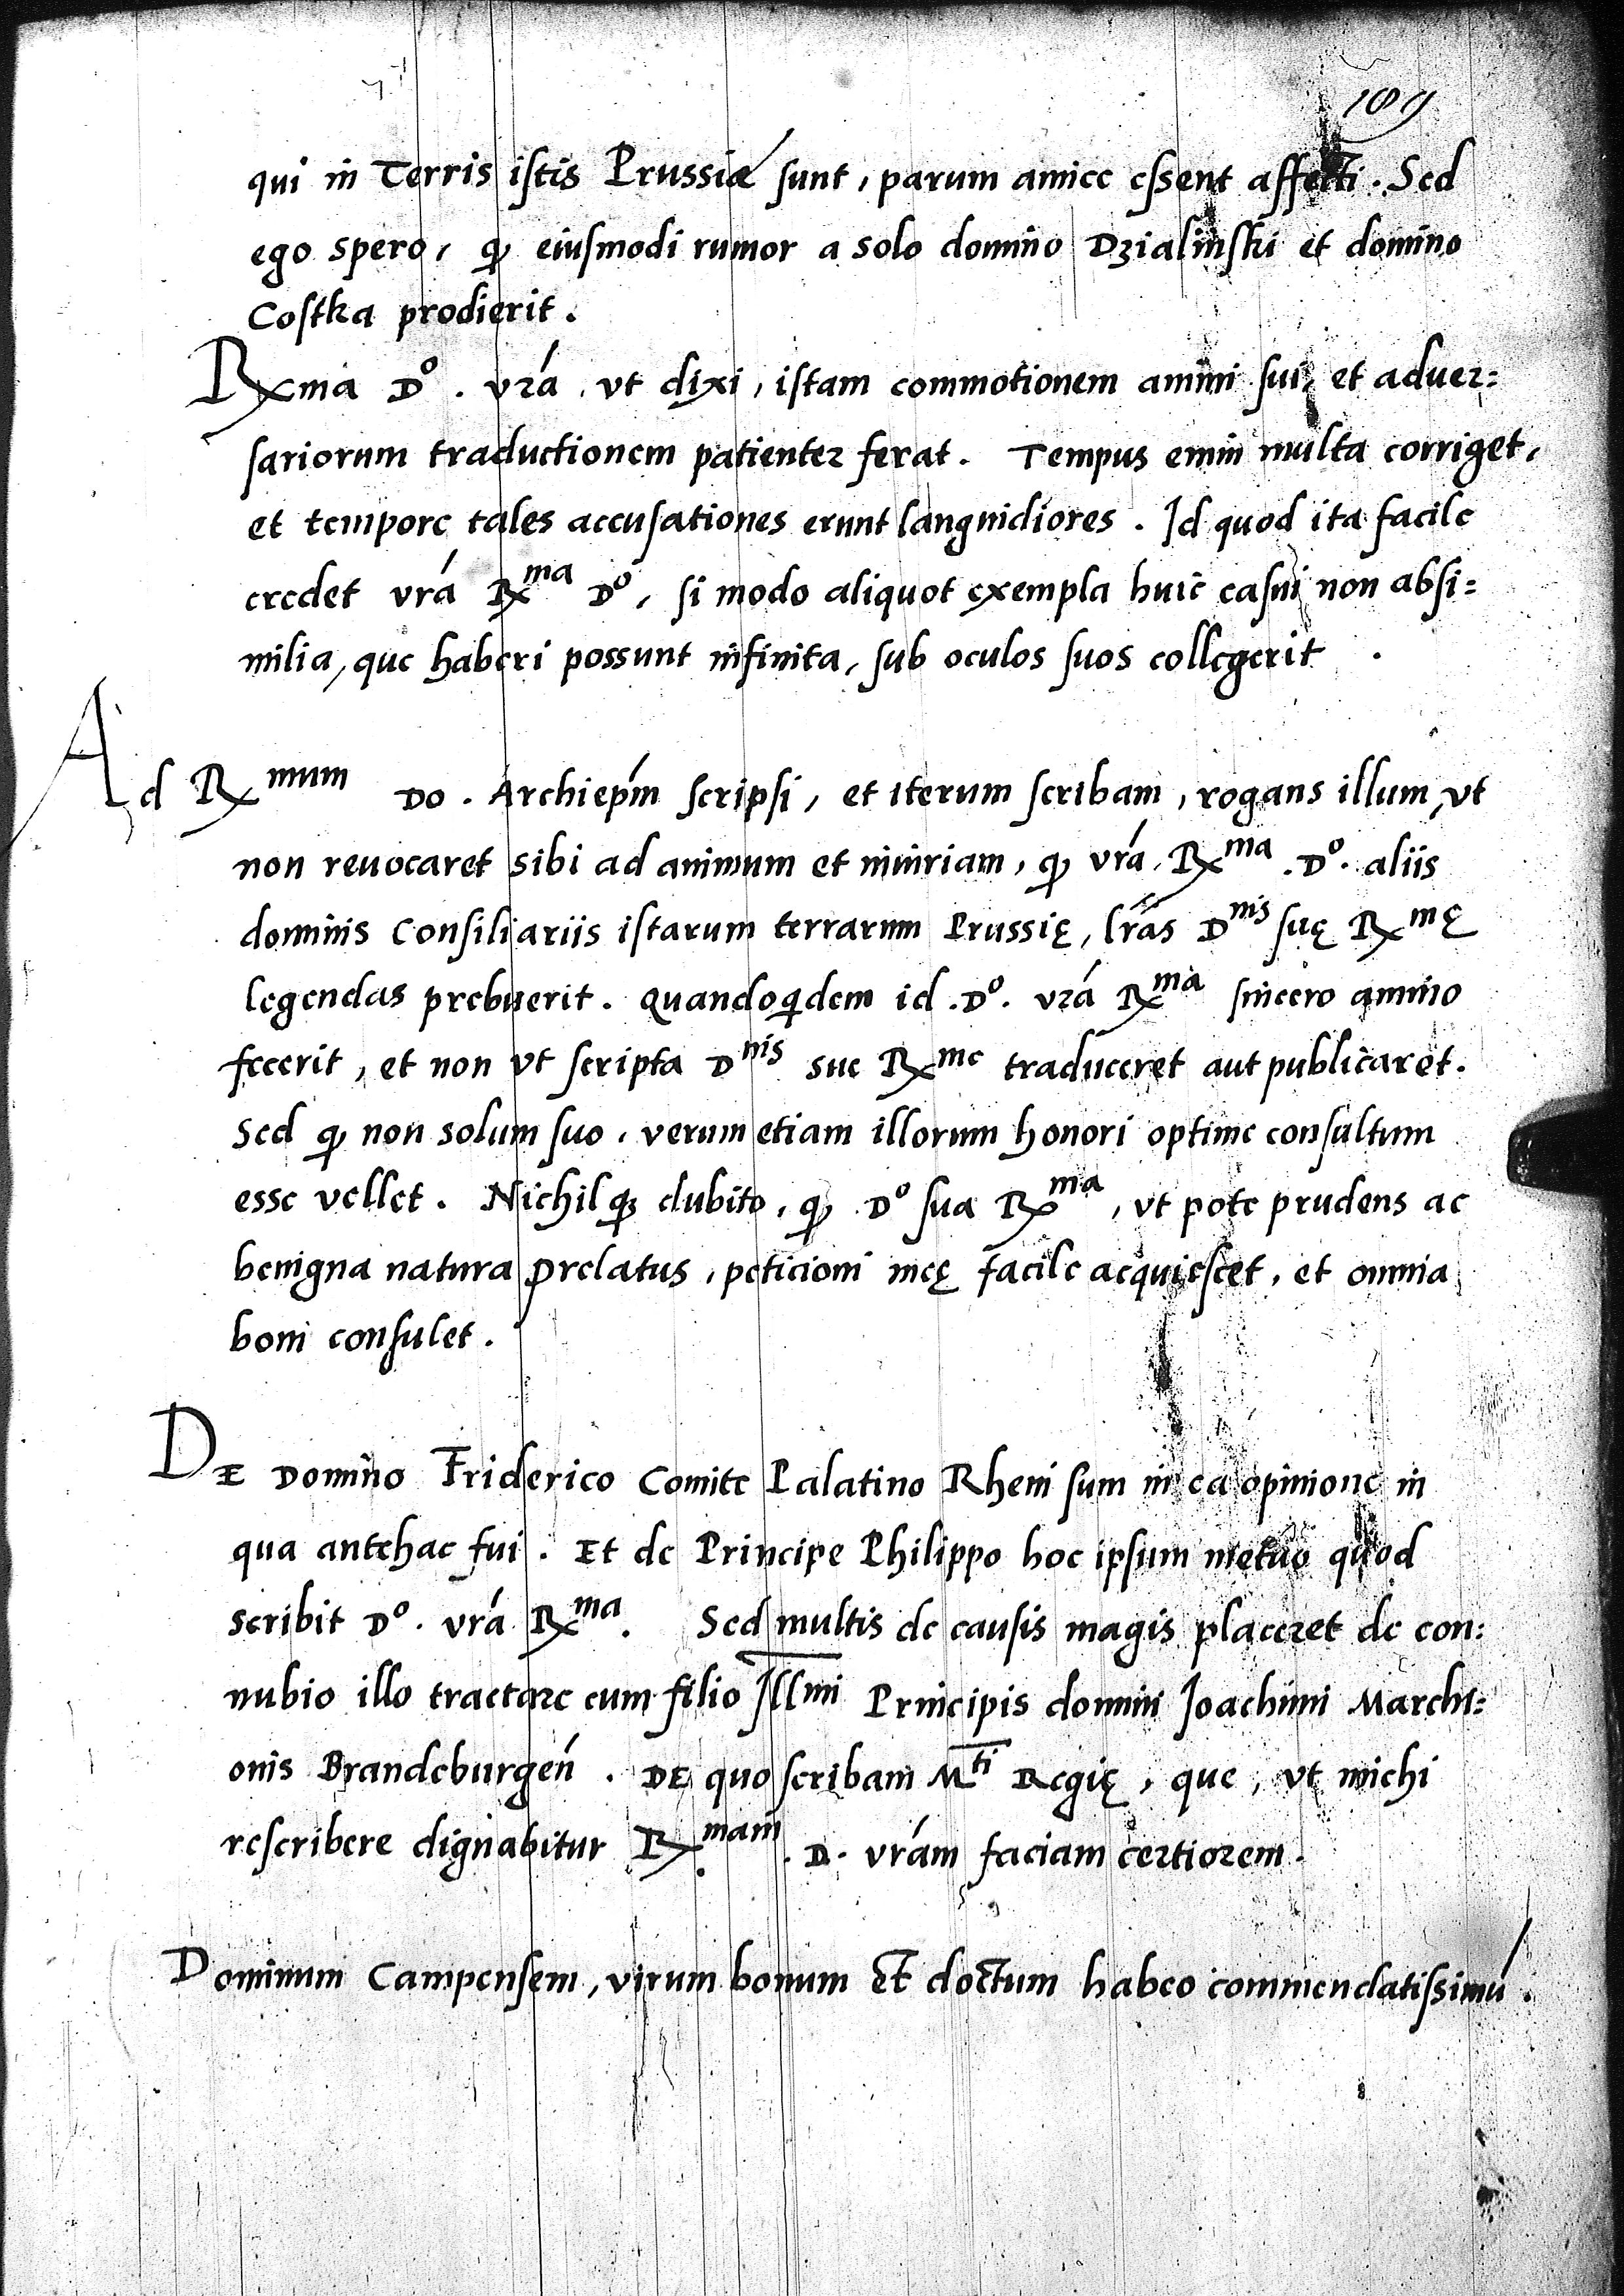 189
qui in Terris istis Prussiæ sunt, parum amice essent affecti. Sed
ego spero, ꝙ eiusmodi rumor a solo domino Dzialinski et domino
Costka prodierit.
Rxma Dº. vrá, vt dixi, istam commotionem animi sui, et aduer=
sariorum traductionem patienter ferat. Tempus enim multa corriget,
et tempore tales accusationes erunt languidiores. Id quod ita facile
credet vrá Rxᵐᵃ Dº, si modo aliquot exempla huic casui non absi=
milia, que haberi possunt infinita, sub oculos suos collegerit.
Ad Rxᵐᵘᵐ Do. Archiepḿ scripsi, et iterum scribam, rogans illum, vt
non reuocaret sibi ad animum et iniuriam, ꝙ vrá. Rxᵐᵃ. Dº. aliis
dominis Consiliariis istarum terrarum Prussię, lrás Dⁿⁱˢ suę Rxᵐę
legendas prebuerit. Quandoqdem id. Dº. vrá Rxᵐᵃ sincero animo
fecerit, et non vt scripta Dⁿⁱˢ sue Rxᵐᵉ traduceret aut publicaret.
Sed ꝙ non solum suo, verum etiam illorum honori optime consultum
esse vellet. Nichil qȝ dubito, ꝙ Dº sua Rxᵐᵃ, vt pote prudens ac
benigna natura prelatus, peticioni meę facile acquiescet, et omnia
boni consulet.
DE Domino Friderico Comite Palatino Rheni sum in ea opinione in
qua antehac fui. Et de Principe Philippo hoc ipsum metuo quod
scribit Dº. vrá Rxᵐᵃ. Sed multis de causis magis placeret de con:
nubio illo tractare cum filio Illmi Principis domini Joachimi Marchi=
onis Brandeburgeń. DE quo scribam Mᵗⁱ Regię, que, vt michi
rescribere dignabitur Rxᵐᵃᵐ. D. vrám faciam certiorem.
Dominum Campensem, virum bonum Et doctum habeo commendatissimú.